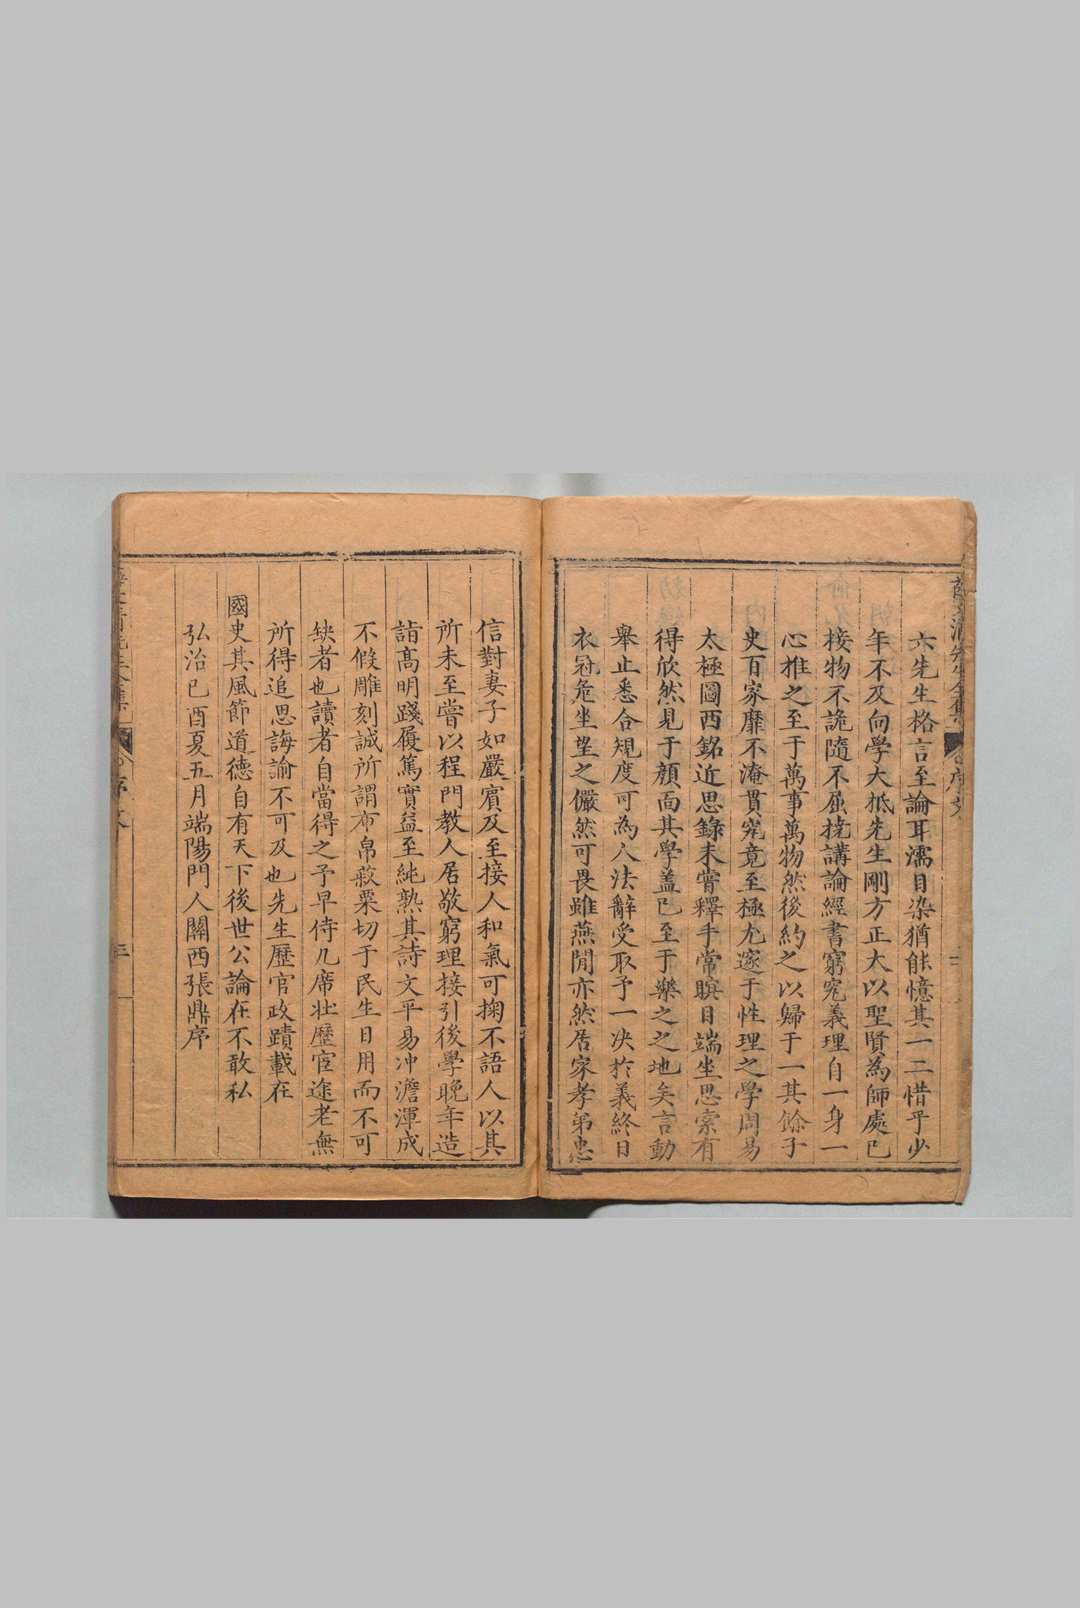 薛文清先生全集 序文 二
六先生格言至論耳濡目染猶能憶其一二惜乎少
年不及向學大抵先生剛方正大以聖賢為師處已
接物不詭隨不屈撓講論經書窮究義理自一身一
心推之至于萬事萬物然後約之以歸于一其餘子
史百家靡不淹貫究竟至極尤邃于性理之學周易
太極圖西銘近思錄未嘗釋手常瞑目端坐思索有
得欣然見于顏面其學盖已至于樂之之地矣言動
舉止悉合規度可為人法辭受取予一决於義終日
衣冠危坐望之儼然可畏雖燕閒亦然居家孝弟忠
信對妻子如嚴賓及至接人和氣可掬不語人以其
所未至嘗以程門教人居敬窮理接引後學晚年造
詣髙明踐履篤實益至純熟其詩文平易冲澹渾成
不假雕刻誠所謂布帛菽粟切于民生日用而不可
缺者也讀者自當得之予早侍几席壮歷宦途老無
所得追思誨諭不可及也先生歷官政蹟載在
國史其風節道德自有天下後世公論在不敢私
弘治己酉夏五月端陽門人關西張鼎序
先生全集 序文 三